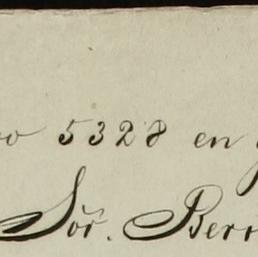 5328 en
Sör. Berr